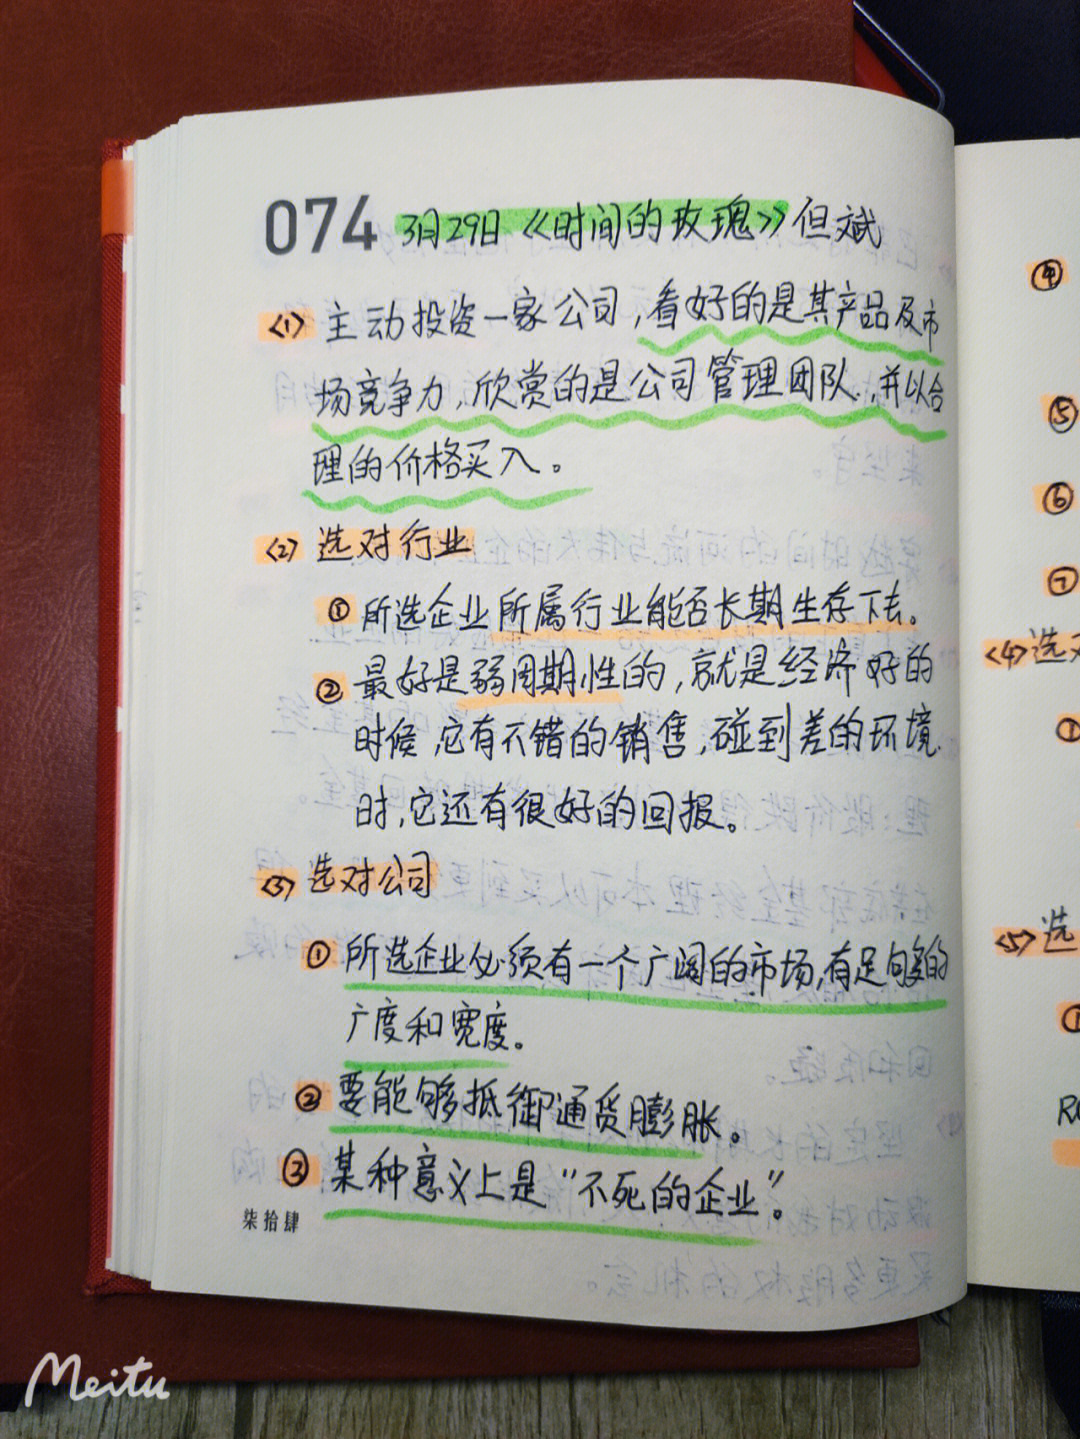 074 3月29日《时间的玫瑰》但斌
<1> 主动投资一家公司,看好的是其产品及市
场竞争力,欣赏的是公司管理团队,并以合
理的价格买入。
<2> 选对行业
① 所选企业所属行业能否长期生存下去。
② 最好是弱周期性的,就是经济好的
时候,它有不错的销售,碰到差的环境
时,它还有很好的回报。
<3> 选对公司
① 所选企业必须有一个广阔的市场,有足够的
广度和宽度。
② 要能够抵御通货膨胀。
③ 某种意义上是“不死的企业”。
柒拾肆
④
⑤
⑥
⑦
<4> 选
①
<5> 选
①
Meitu